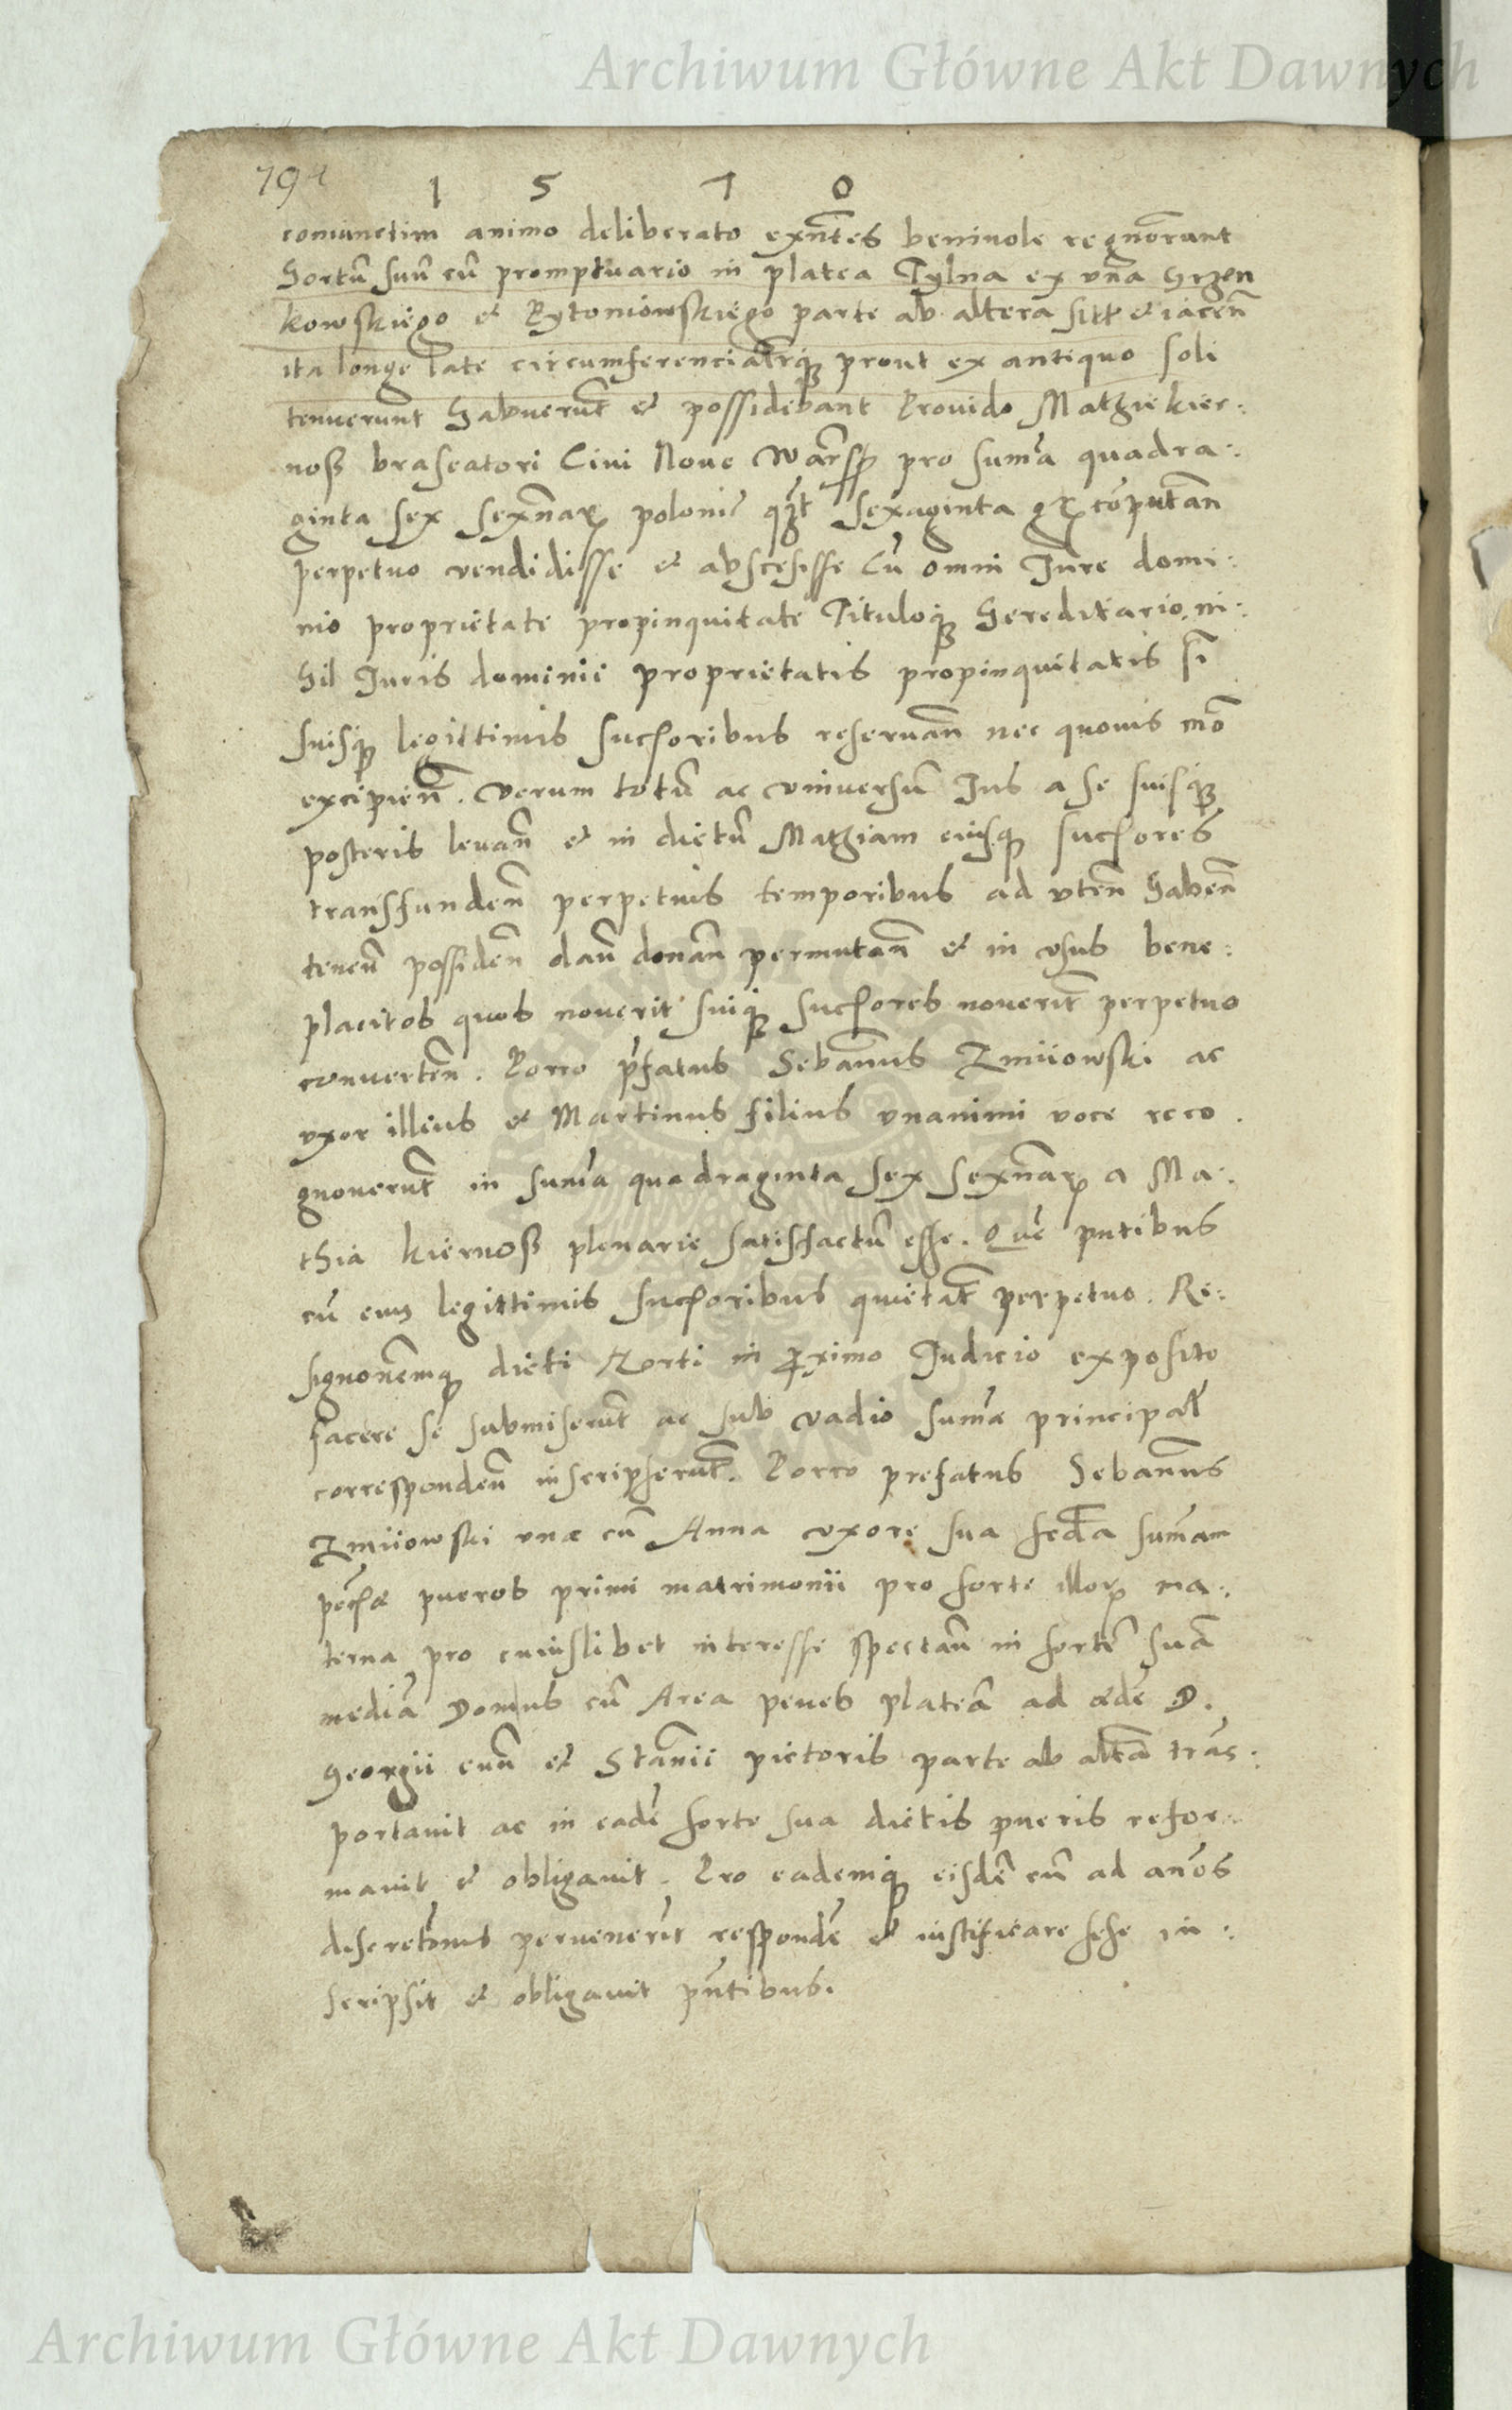 Archiwum Główne Akt Dawnych
794
1 5 7 0
coniunctim animo deliberato exñtes beniuole regnõrunt
Hortũ suũ cũ promptuario in platea Tylna ex vña Grzen
kowskiego et Rytoniowskiego parte ab altera sitt et iaceñ
ita longe late circumferencialrq̃ prout ex antiquo soli
tenuerunt habuerũt et possidebant Prouido Mathie kier:
noß braseatori Ciui Noue Warß pro sum̃a quadra:
ginta sex sexñaꝝ poloni qũlt sexaginta gꝝ cõputan
perpetuo vendidisse et abscesisse Cũ omni Iure domi:
nio proprietate propinquitate Tituloq̃ Hereditario, ni:
hil Iuris dominii proprietatis propinquitatis s̃i
suisq̃ legittimis sucßoribus reseruañ nec quouis mõ
excipieñ. Verum totũ ac vniuersũ Ius a se suisq̃
posteris leuañ et in dictũ Mathiam eiusq̃ sucßores
transfundeñ perpetuis temporibus ad vteñ habeñ
teneñ possideñ dañ donañ permutañ et in vsus bene:
placitos quos nouerit suiq̃ sucßores nouerĩt perpetuo
conuerteñ. Porro p̃fatus Sebañus Zmiiowski ac
vxor illius et Martinus filius vnanimi voce reco.
gnouerũt in sum̃a quadraginta sex sexñaꝝ a Ma:
thia kiernoß plenarie satisfactũ esse. Quẽ pñtibus
cũ eius legittimis sucßoribus quietãt perpetuo. Re:
signonemq̃ dicti Horti in p̃ximo Iudicio exposito
facere se submiserũt ac sub vadio sum̃e principal̃
correspondeñ inscripserũt. Porro prefatus Sebañus
Zmiiowski vna cũ Anna vxore sua sec̃da sum̃am
pecßæ pueros primi matrimonii pro sorte illoꝝ ma:
terna pro cuiuslibet interesse spectañ in sortẽ suã
mediã Domus cũ Area penes plateã ad ædẽ D.
Georgii euñ et Stañii pictoris parte ab altã trãs:
portauit ac in eadẽ sorte sua dictis pueris refor:
mauit et obligauit. Pro eademq̃ eisdẽ cũ ad añõs
discretõnis peruenerĩt respondẽ et iustificare sese in:
scripsit et obligauit pñtibus.
Archiwum Główne Akt Dawnych